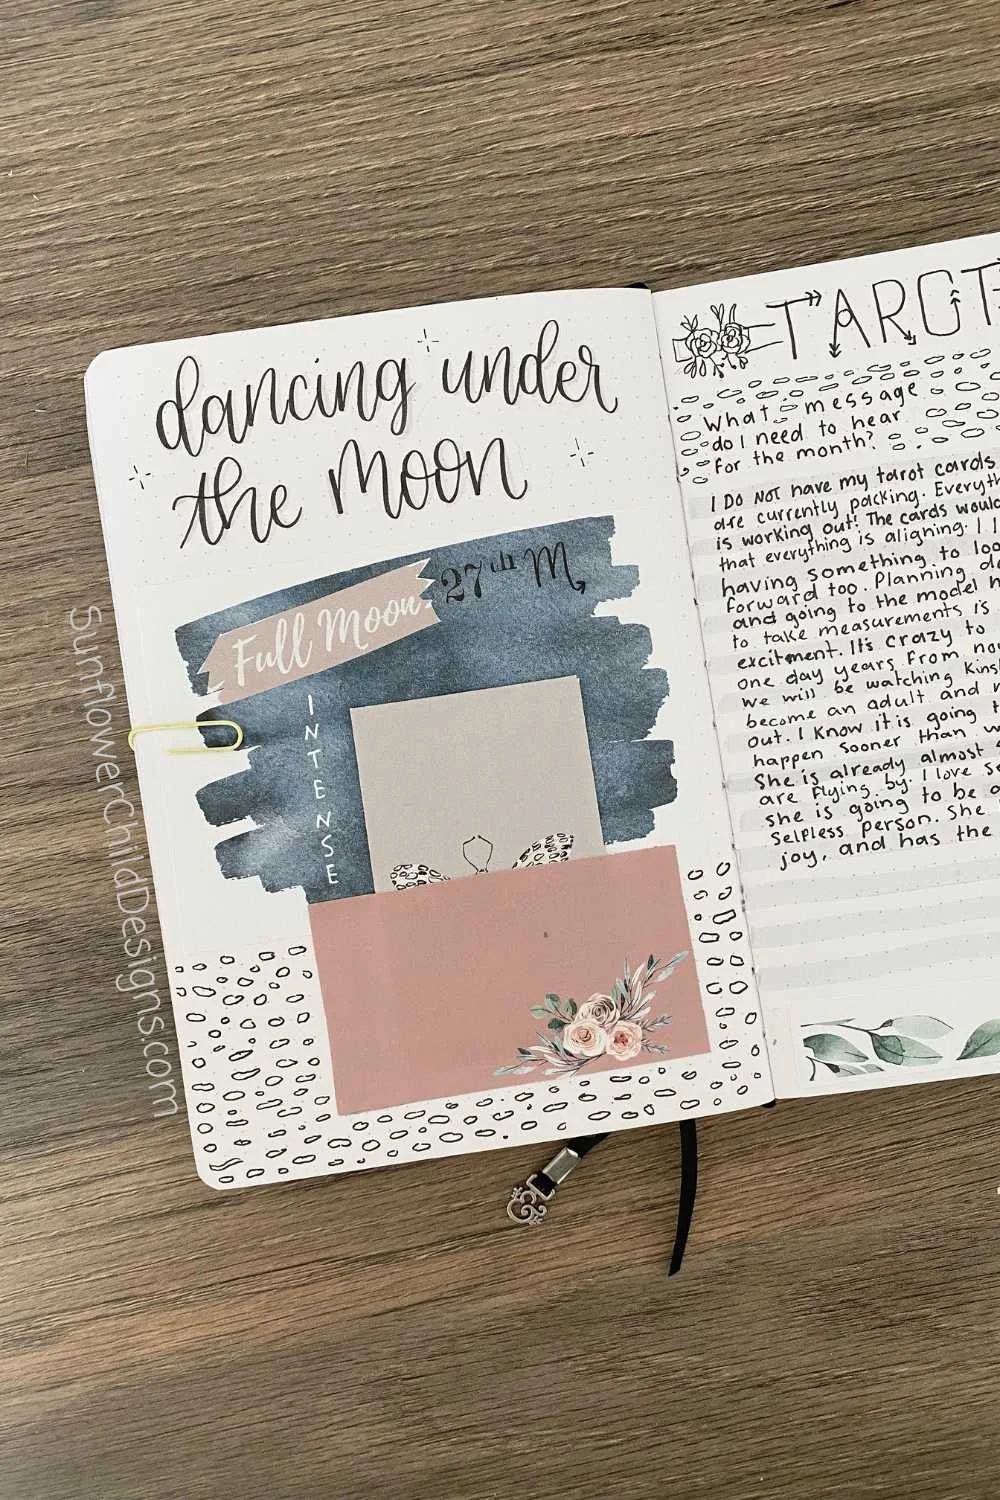 dancing under
the moon
Full Moon
27th M
INTENSE
SunflowerChildDesigns.com
TAROT
What message
do I need to hear
for the month?
I DO NOT have my tarot cards
are currently packing. Everyth
is working out! The cards would
that everything is aligning. I
having something to loo
forward too. Planning
and going to the model
to take measurements is
excitment. Its crazy to
one day years from now
we will be watching Kins
become an adult and
out. I know it is going
happen sooner than
She is already almost
are flying by. I love
she is going to be a
Selfless person. She
joy, and has the